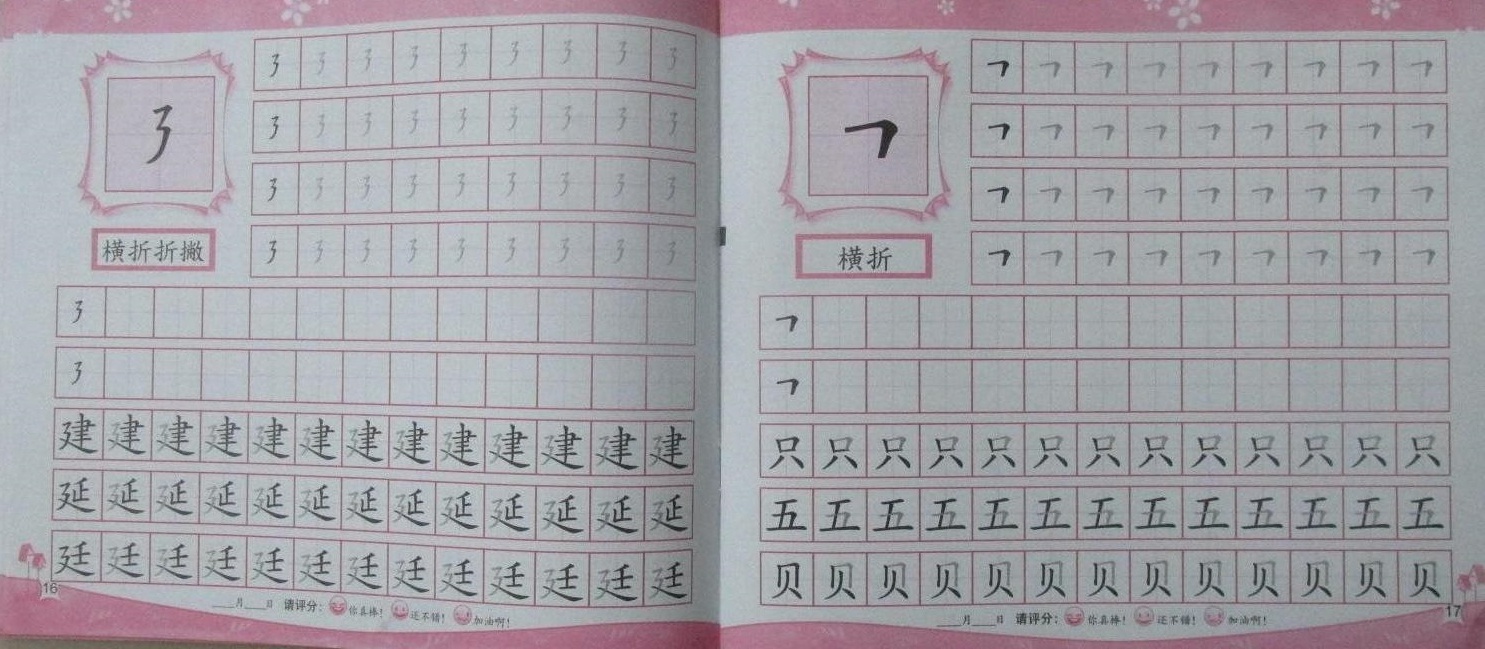 ㇋
㇋㇋㇋㇋㇋㇋㇋㇋㇋
㇋㇋㇋㇋㇋㇋㇋㇋㇋
㇋㇋㇋㇋㇋㇋㇋㇋㇋
㇋㇋㇋㇋㇋㇋㇋㇋㇋
横折折撇
㇋
㇋
建建建建建建建建建建建建建
延延延延延延延延延延延延延
廷廷廷廷廷廷廷廷廷廷廷廷廷
16
____月____日 请评分： 你真棒！ 还不错！ 加油啊！
㇕
㇕㇕㇕㇕㇕㇕㇕㇕㇕
㇕㇕㇕㇕㇕㇕㇕㇕㇕
㇕㇕㇕㇕㇕㇕㇕㇕㇕
㇕㇕㇕㇕㇕㇕㇕㇕㇕
横折
㇕
㇕
只只只只只只只只只只只只只
五五五五五五五五五五五五五
贝贝贝贝贝贝贝贝贝贝贝贝贝
____月____日 请评分： 你真棒！ 还不错！ 加油啊！
17